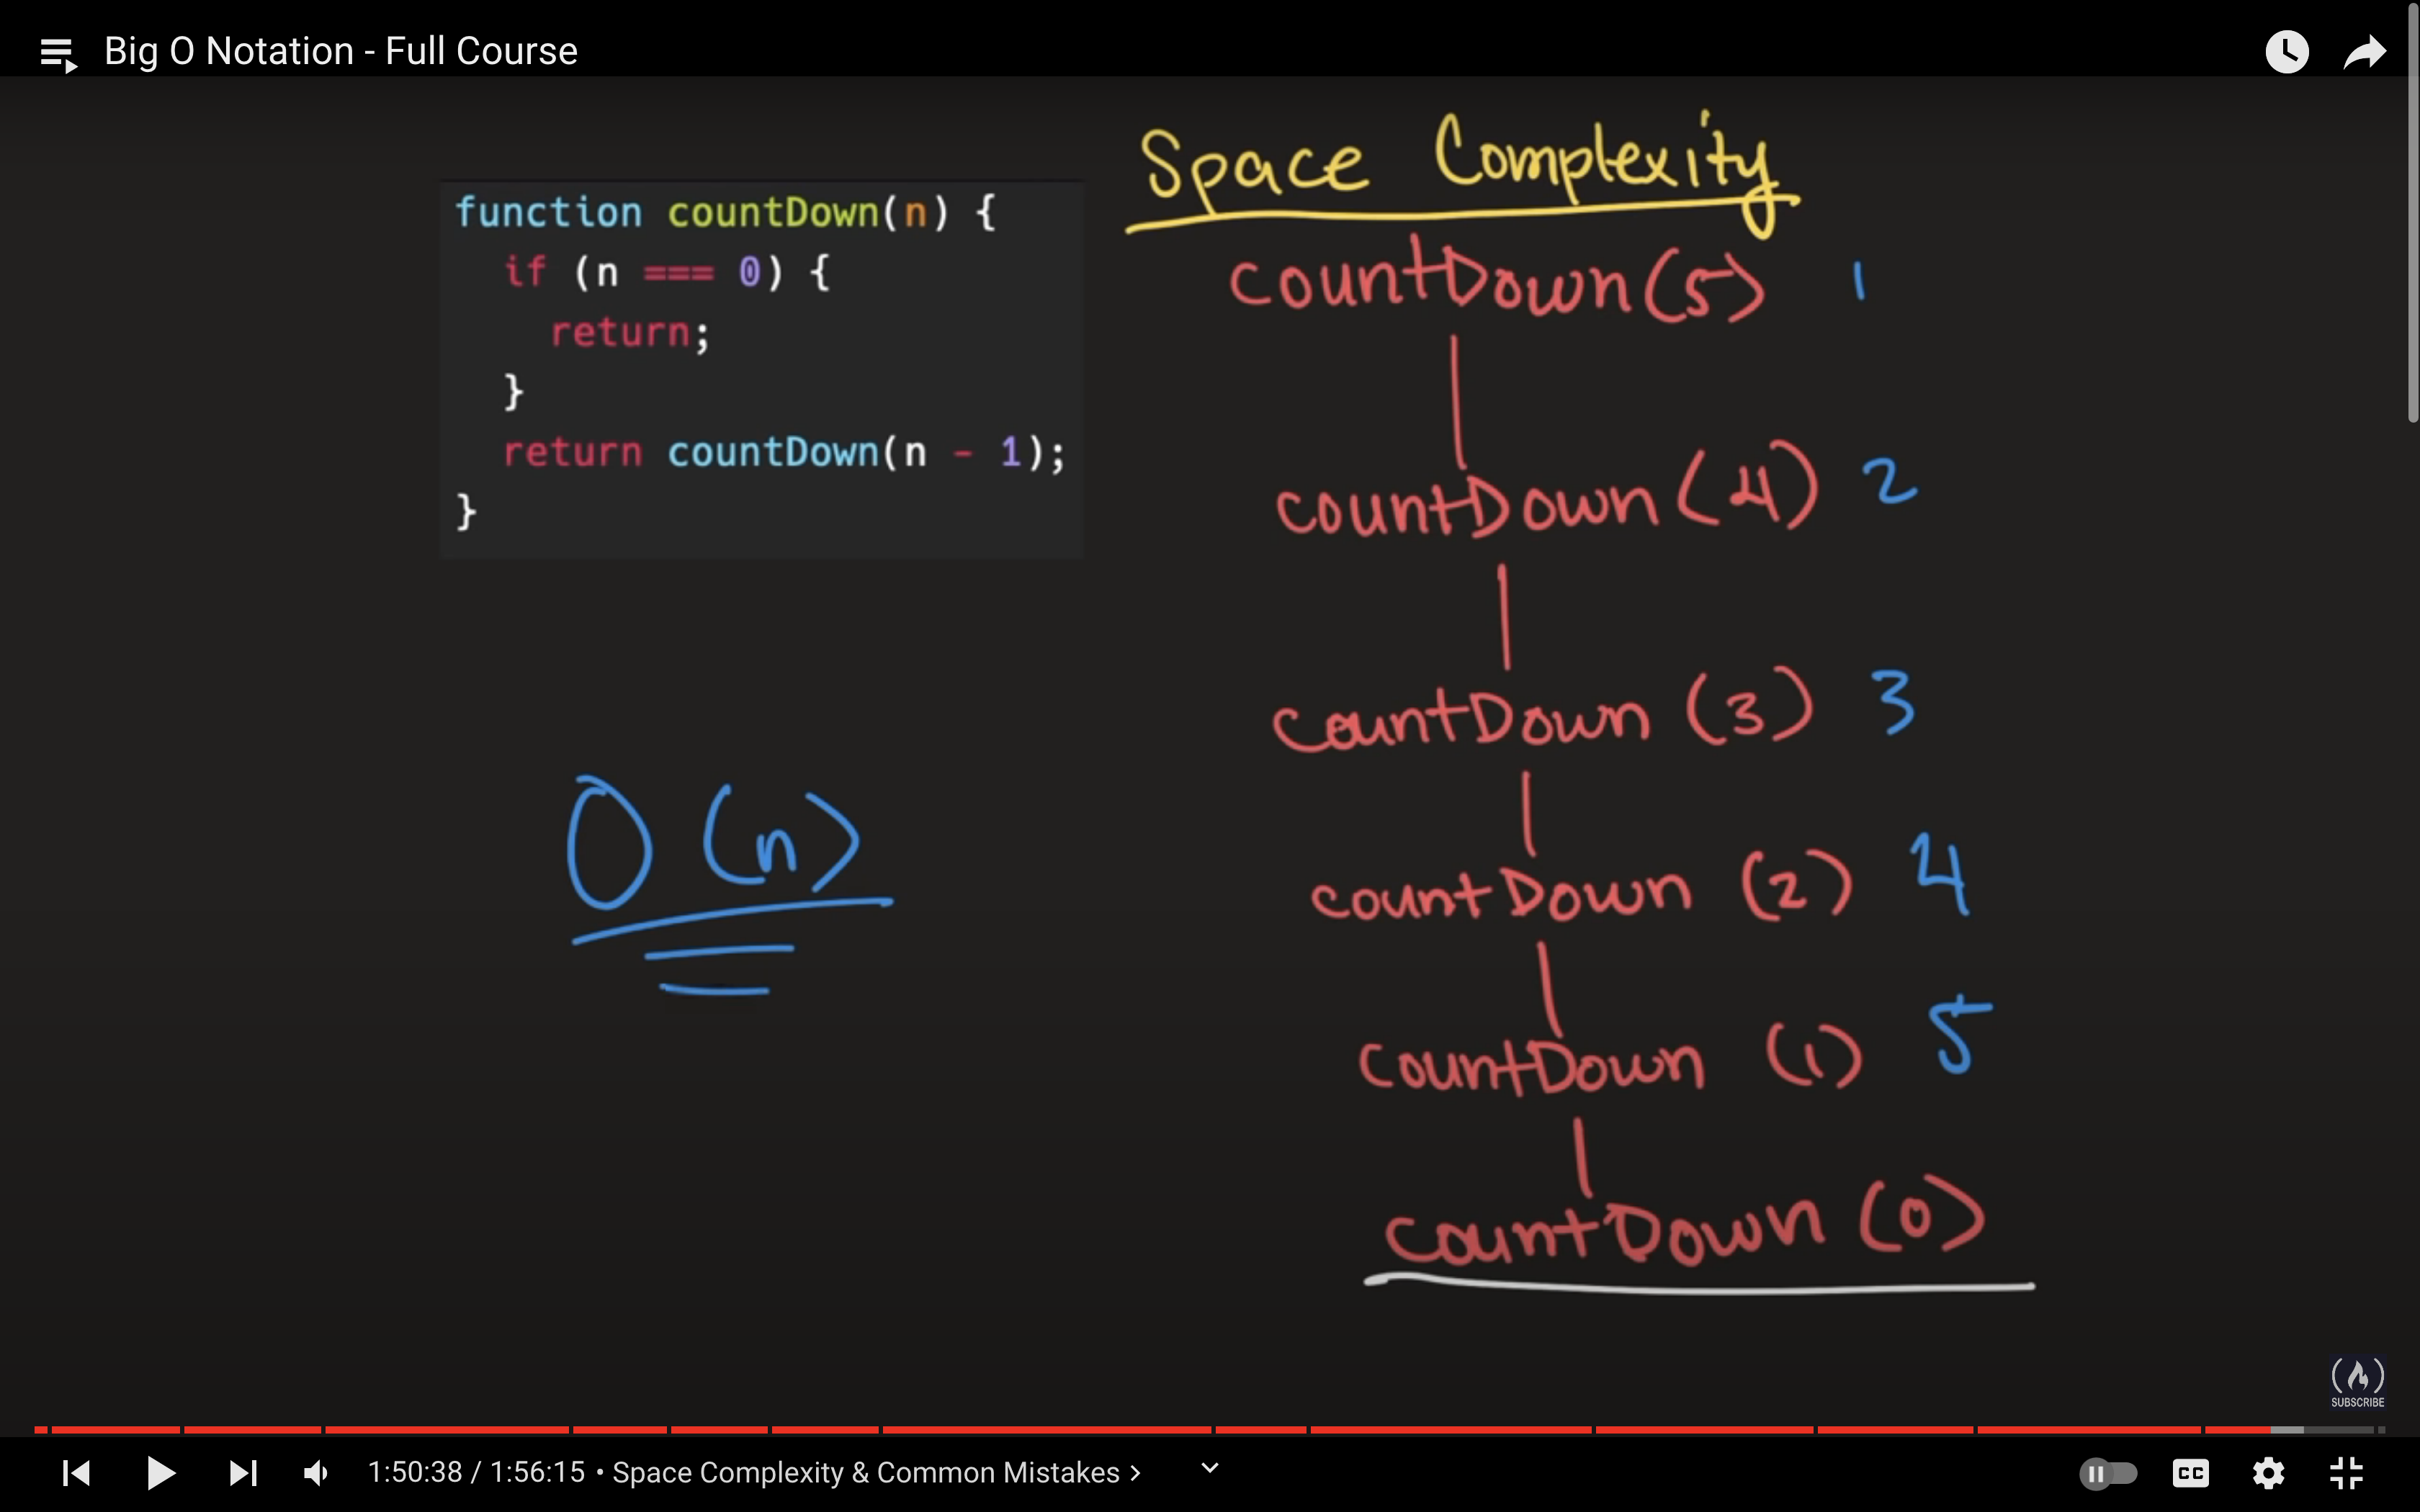 Big O Notation - Full Course
Space Complexity
function countDown(n) {
if (n === 0) {
return;
}
return countDown(n - 1);
}
countDown(5) 1
countDown(4) 2
countDown(3) 3
countDown(2) 4
countDown(1) 5
countDown(0)
O(n)
SUBSCRIBE
1:50:38 / 1:56:15 • Space Complexity & Common Mistakes >
CC